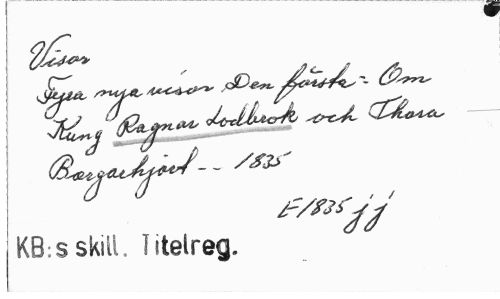 Visor
Fyra nya visor Den första = Om
Kung Ragnar Lodbrok och Thora
Borgarhjort -- 1835
E 1835 jj
KB:s skill. Titelreg.